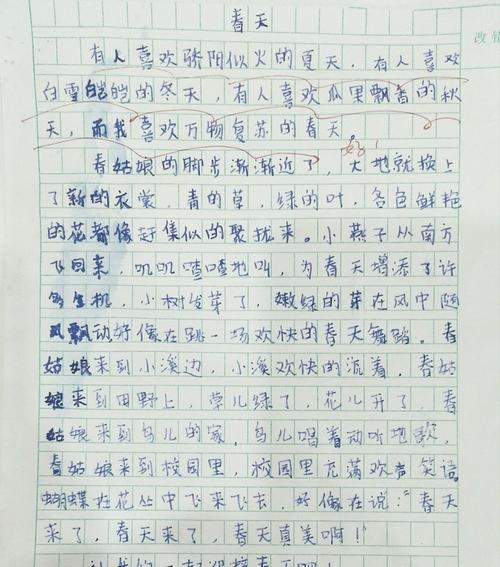 春天
改错
有人喜欢骄阳似火的夏天，有人喜欢
白雪皑皑的冬天，有人喜欢瓜果飘香的秋
天，而我喜欢万物复苏的春天。
好！
春姑娘的脚步渐渐近了，大地就换上
了新的衣裳，青的草，绿的叶，各色鲜艳
的花都像赶集似的聚拢来。小燕子从南方
飞回来，叽叽喳喳地叫，为春天增添了许
多生机，小树发芽了，嫩绿的芽在风中随
风飘动好像在跳一场欢快的春天舞蹈。春
姑娘来到小溪边，小溪欢快的流着，春姑
娘来到田野上，草儿绿了，花儿开了，春
姑娘来到鸟儿的家，鸟儿唱着动听地歌，
春姑娘来到校园里，校园里充满欢声笑语。
蝴蝶在花丛中飞来飞去，好像在说：“春天
来了，春天来了，春天真美啊！